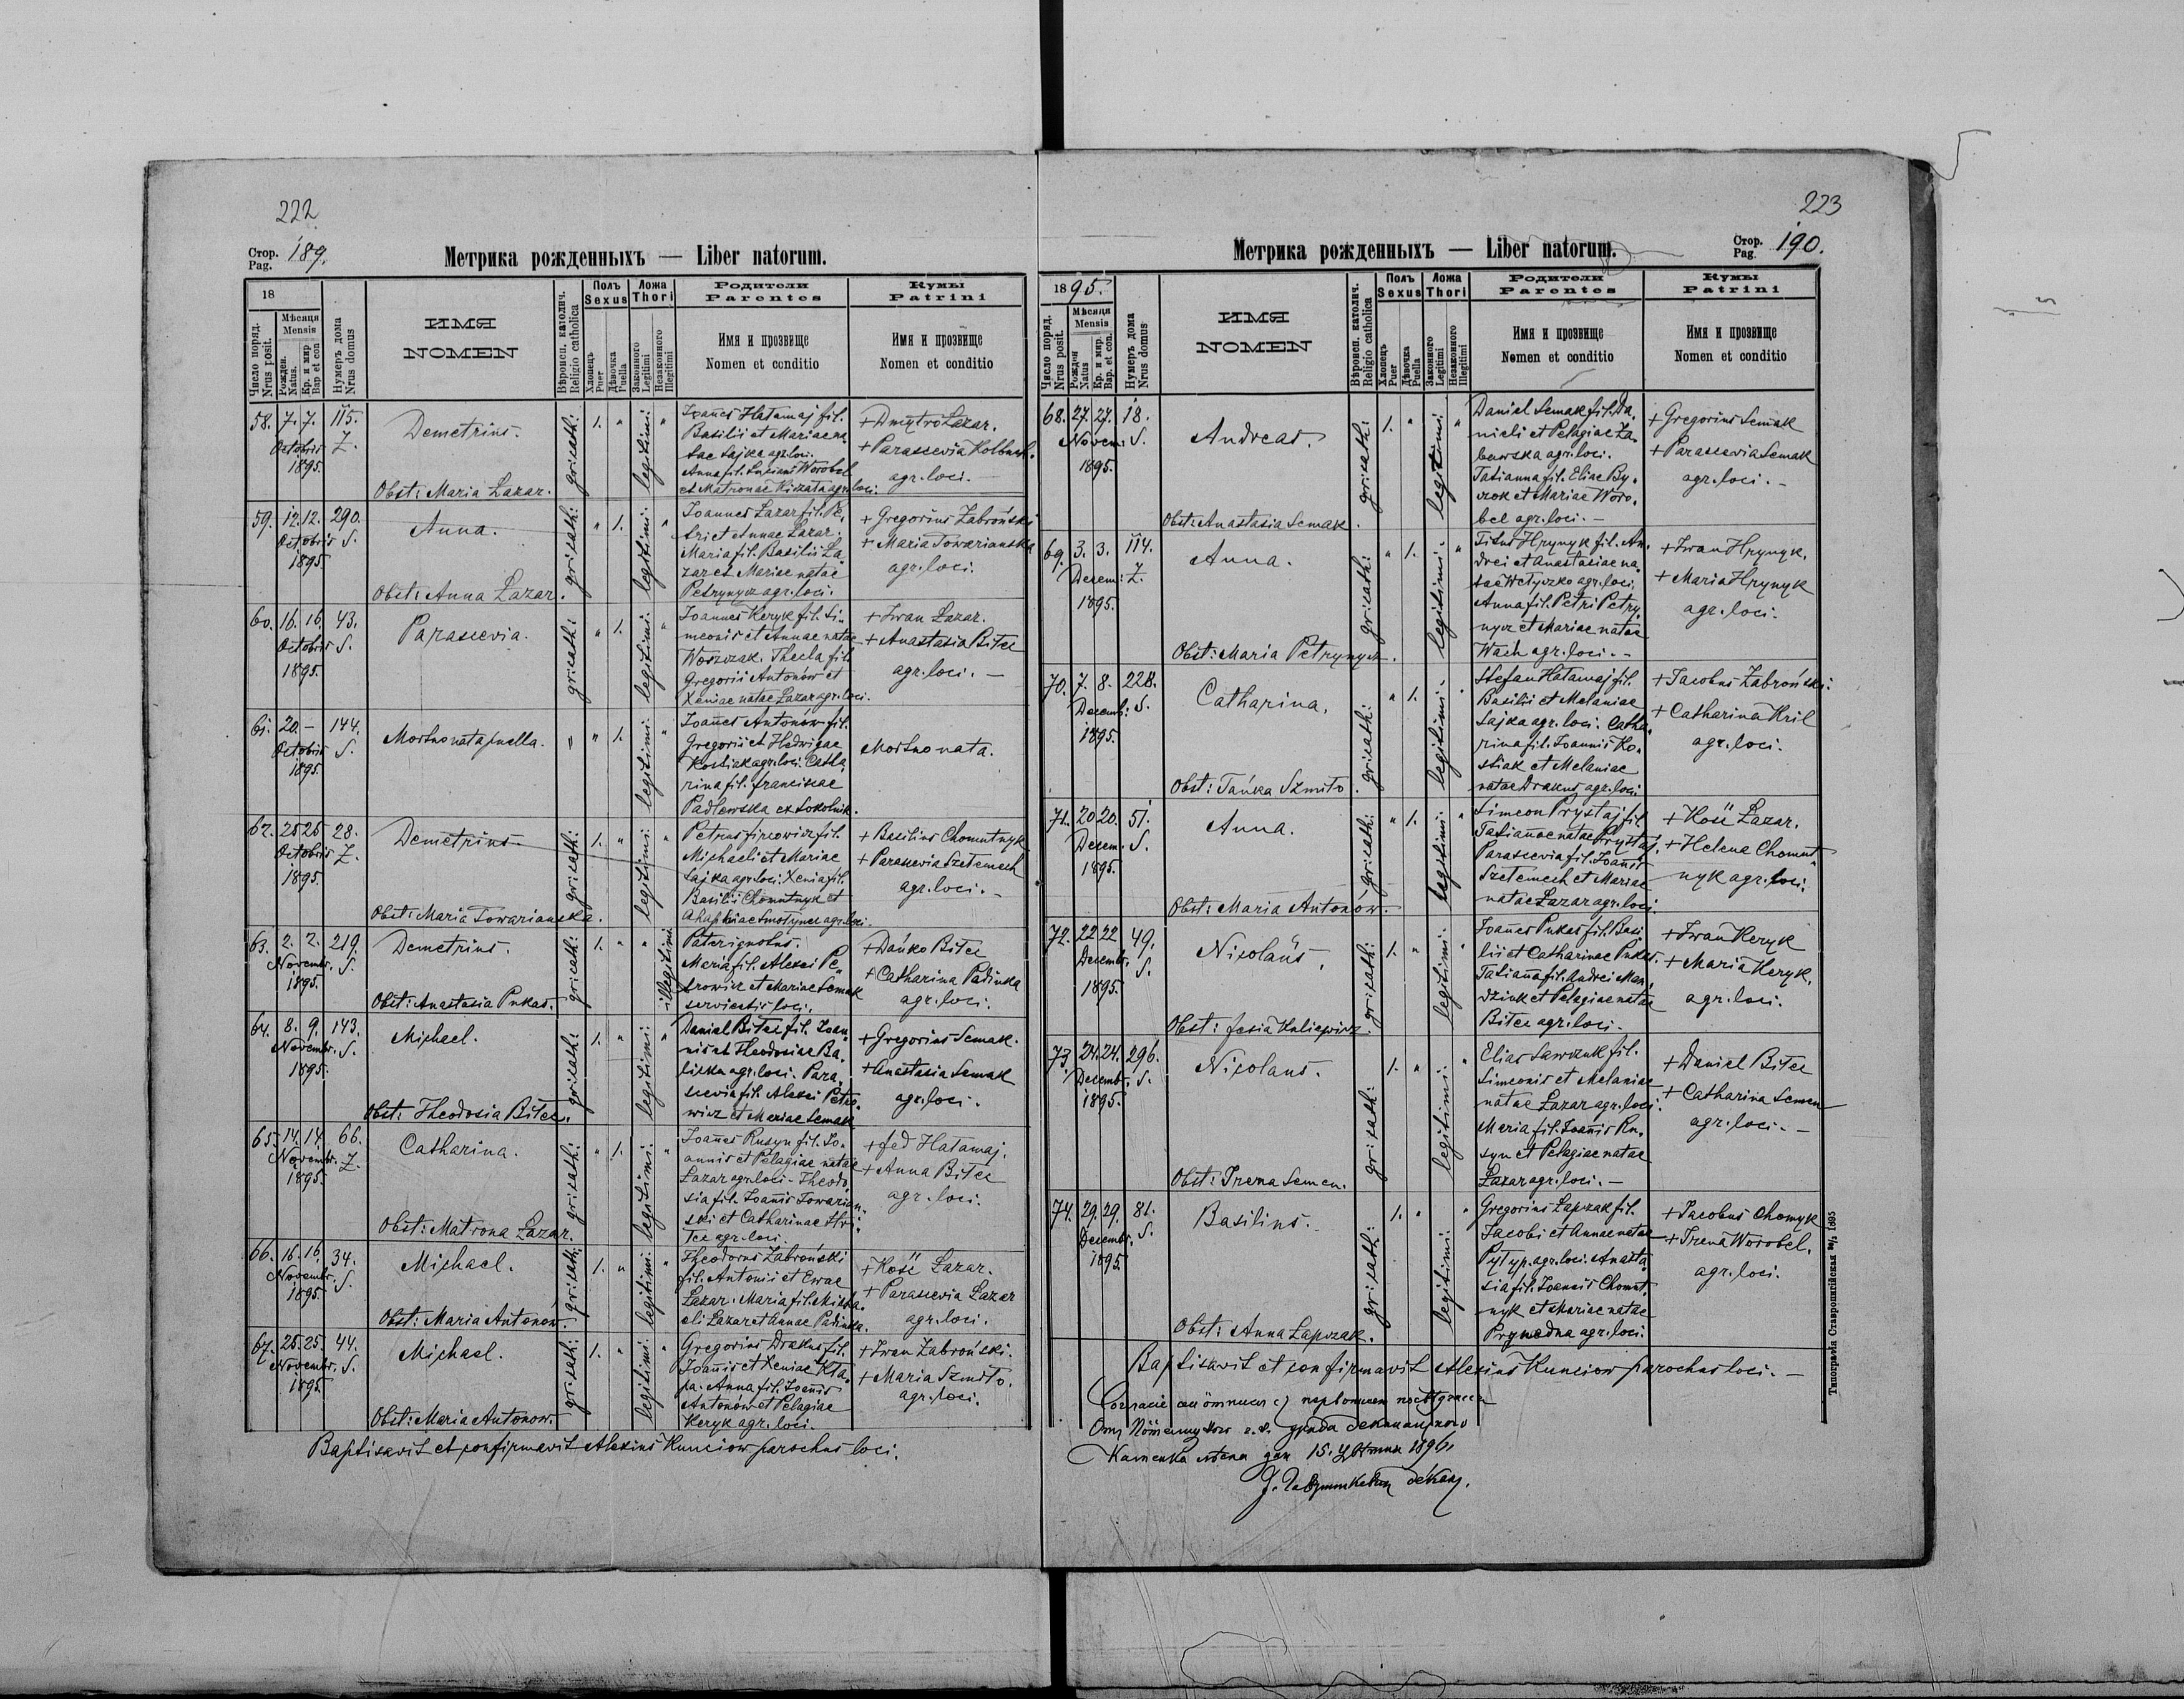 222
Стор. Pag. 189.
Метрика рожденныхъ — Liber natorum.
18
Число поряд. Nrus posit.
Мѣсяця Mensis
Рожден. Natus.
Кр. и мир Bap. et con
Нумеръ дома Nrus domus
ИМЯ
NOMEN
Вѣроисп. католич. Religio catholica
Полъ Sexus
Хлопець Puer
Дѣвочка Puella
Ложа Thori
Законного Legitimi
Незаконного Illegitimi
Родители
Parentes
Имя и прозвище
Nomen et conditio
Кумы
Patrini
Имя и прозвище
Nomen et conditio
58. 7. 7. 115.
Octobris Z.
1895.
Demetrius.
Obst: Maria Lazar.
gr: cath: 1. " legitimi: "
Joañes Hatamaj fil.
Basilii et Mariae na
tae Sajka agr. loci.
Anna fil. Luciani Worobel
et Matronae Kiszata agr. loci.
+ Dmytro Lazar.
+ Parascevia
agr. loci. —
59. 12. 12. 290.
Octobris S.
1895
Anna.
Obst: Anna Lazar.
gr: cath: " 1. legitimi: "
Joannes Lazar fil. Pe-
tri et Annae Lazar.
Maria fil. Basilii La-
zar et Mariae natae
Petrynycz agr. loci.
+ Gregorius Zabroński
+ Maria Towarianska
agr. loci.
60. 16. 16. 43.
Octobris S.
1895.
Parascevia.
gr: cath: " 1. legitimi: "
Joannes Keryk fil. Si-
meonis et Annae natae
Woszczak. Thecla fil.
Gregorii Antonów et
Xeniae natae Lazar agr. loci.
+ Iwan Lazar.
+ Anastasia Bitec
agr. loci. —
61. 20. — 144.
Octobris S.
1895.
Mortuo nata puella.
" 1. legitimi: "
Joañes Antonów fil.
Gregorii et Hedwigae
Kostiak agr. loci. Catha-
rina fil. Franciscae
Padlewska ex Sokolnik.
Mortuo nata.
62. 25 25 28.
Octobris Z.
1895.
Demetrius.
Obst: Maria Towarianska.
gr: cath: 1. " legitimi: "
Petrus Fircowicz fil.
Michaeli et Mariae
Sajka agr. loci. Xenia fil.
Basilii Chomutnyk et
Ahaphiae Smotynec agr. loci.
+ Basilius Chomutnyk
+ Parascevia Szetemech
agr. loci. —
63. 2. 2. 219.
Novembr. S.
1895.
Demetrius.
Obst: Anastasia Pukas.
gr: cath: 1. " " illegitimi.
Pater ignotus.
Maria fil. Alexei Pe-
trowicz et Mariae Semak
servientis loci.
+ Dańko Bitec
+ Catharina Padinka
agr. loci.
64. 8. 9. 143.
Novembr. S.
1895.
Michael.
Obst: Theodosia Bitec.
gr: cath: 1. " legitimi: "
Daniel Bitec fil. Joan-
nis et Theodosiae Ba-
liska agr. loci. Para-
scevia fil. Alexei Petro-
wicz et Mariae Semak
+ Gregorius Semak.
+ Anastasia Semak
agr. loci.
65. 14. 14. 66.
Novembr. Z.
1895.
Catharina.
Obst: Matrona Lazar.
gr: cath: " 1. legitimi: "
Joañes Rusyn fil. Jo-
annis et Pelagiae natae
Lazar agr. loci. Theodo-
sia fil. Joannis Towarian-
ski et Catharinae
agr. loci.
+ Fed Hatamaj.
+ Anna Bitec
agr. loci.
66. 16. 16. 34.
Novembr. S.
1895.
Michael.
Obst: Maria Antonów.
gr: cath: 1. " legitimi: "
Theodorus Zabroński
fil. Antonii et Ewae
Lazar. Maria fil. Micha-
eli Lazar et Annae Padinka.
+ Kość Lazar.
+ Parascevia Lazar
agr. loci.
67. 25. 25. 44.
Novembr. S.
1895.
Michael.
Obst: Maria Antonow.
gr: cath: 1. " legitimi: "
Gregorius Drakus fil.
Joannis et Xeniae Kla-
pa. Anna fil. Joannis
Antonów et Pelagiae
Keryk agr. loci.
+ Iwan Zabroński.
+ Maria Szmito.
agr. loci.
Baptisavit et confirmavit Alexius Kunciow parochus loci.
223
Стор. Pag. 190.
Метрика рожденныхъ — Liber natorum.
1895.
Число поряд. Nrus posit.
Мѣсяця Mensis
Рожден Natus
Кр. и мир. Bap. et con.
Нумеръ дома Nrus domus
ИМЯ
NOMEN
Вѣроисп. католич. Religio catholica
Полъ Sexus
Хлопецъ Puer
Дѣвочка Puella
Ложа Thori
Законного Legitimi
Незаконного Illegitimi
Родители
Parentes
Имя и прозвище
Nomen et conditio
Кумы
Patrini
Имя и прозвище
Nomen et conditio
68. 27. 27. 18.
Novem: S.
1895.
Andreas.
Obst: Anastasia Semak.
gr: cath: 1. " legitimi: "
Daniel Semak fil. Da-
nieli et Pelagiae Za-
bewska agr. loci.
Tatianna fil. Eliae By-
czok et Mariae Woro-
bel agr. loci. —
+ Gregorius Semak
+ Parascevia Semak
agr. loci. —
69. 3. 3. 114.
Decem: Z.
1895.
Anna.
Obst: Maria Petrynycz.
gr: cath: " 1. legitimi: "
Titus Hrynyk fil. An-
drei et Anastasiae na-
tae Wetyczko agr. loci.
Anna fil. Petri Petry-
nycz et Mariae natae
Wach agr. loci. —
+ Iwan Hrynyk.
+ Maria Hrynyk
agr. loci.
70. 7. 8. 228.
Decemb: S.
1895.
Catharina.
Obst: Tańka Szmito.
gr: cath: " 1. legitimi: "
Stefan Hatamaj fil.
Basilii et Melaniae
Sajka agr. loci. Catha-
rina fil. Joannis Ko-
stiak et Melaniae
natae Drakus agr. loci.
+ Jacobus Zabroński.
+ Catharina Kril
agr. loci.
71. 20 20. 51.
Decem. S.
1895.
Anna.
Obst: Maria Antonów.
gr: cath: " 1. legitimi: "
Simeon Prystaj fil.
Tatiannae natae Prystaj.
Parascevia fil. Joannis
Szetemech et Mariae
natae Lazar agr. loci.
+ Kość Lazar.
+ Helena Chomut-
nyk agr. loci.
72. 22 22 49.
Decembr. S.
1895.
Nicolaus.
Obst: Fesia Kuliewicz.
gr: cath: 1. " legitimi: "
Joañes Pukas fil. Basi-
lii et Catharinae Pukas.
Tatiañа fil. Andrei Man-
dziuk et Pelagiae natae
Bitec agr. loci.
+ Iwan Keryk
+ Maria Keryk.
agr. loci.
73. 24. 24. 296.
Decemb. S.
1895.
Nicolaus.
Obst: Irena Semen.
gr: cath: 1. " legitimi: "
Elias Sawczuk fil.
Simeonis et Melaniae
natae Lazar agr. loci.
Maria fil. Joannis Ru-
syn et Pelagiae natae
Lazar agr. loci. —
+ Daniel Bitec
+ Catharina Semen
agr. loci. —
74. 29. 29. 81.
Decembr. S.
1895
Basilius.
Obst: Anna Lapczak.
gr: cath: 1. " legitimi: "
Gregorius Lapczak fil.
Jacobi et Annae natae
Pytyp. agr. loci. Anasta-
sia fil. Joannis Chomut-
nyk et Mariae natae
Prynedna agr. loci.
+ Jacobus Chomyk
+ Irena Worobel.
agr. loci.
Baptisavit et confirmavit Alexius Kunciow parochus loci. —
15. 1896.
декан.
Типографія Ставропигійская 1895